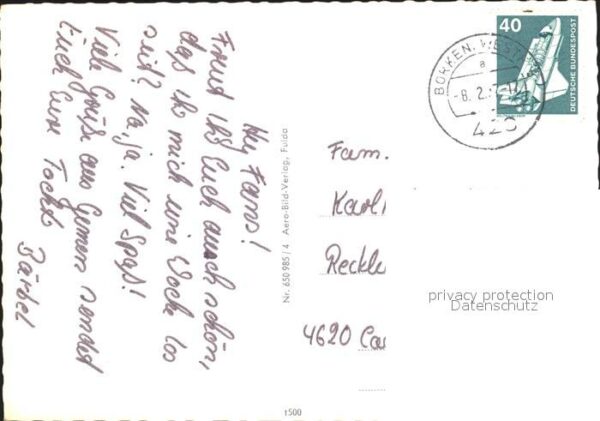 Hey Fans!
Freut Ihr Euch auch schön,
das ihr mich eine Woche los
seid? Na, ja. Viel Spaß!
Viele Grüße aus Gemen sendet
Euch Eure Tochter
Bärbel
Nr. 650 985/4 Aero-Bild-Verlag, Fulda
Fam.
Karl
Reckle
4620 Cas
40
DEUTSCHE BUNDESPOST
BORKEN, WESTF
a
-8.2.
426
privacy protection
Datenschutz
1500